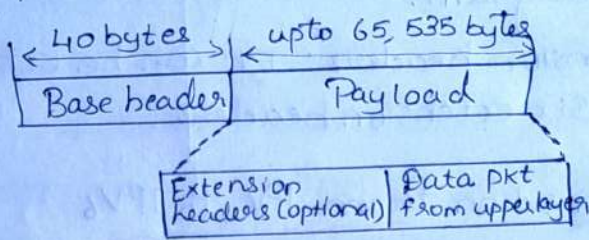 40 bytes upto 65,535 bytes
Base header Payload
Extension Data pkt
headers (optional) from upperlayer